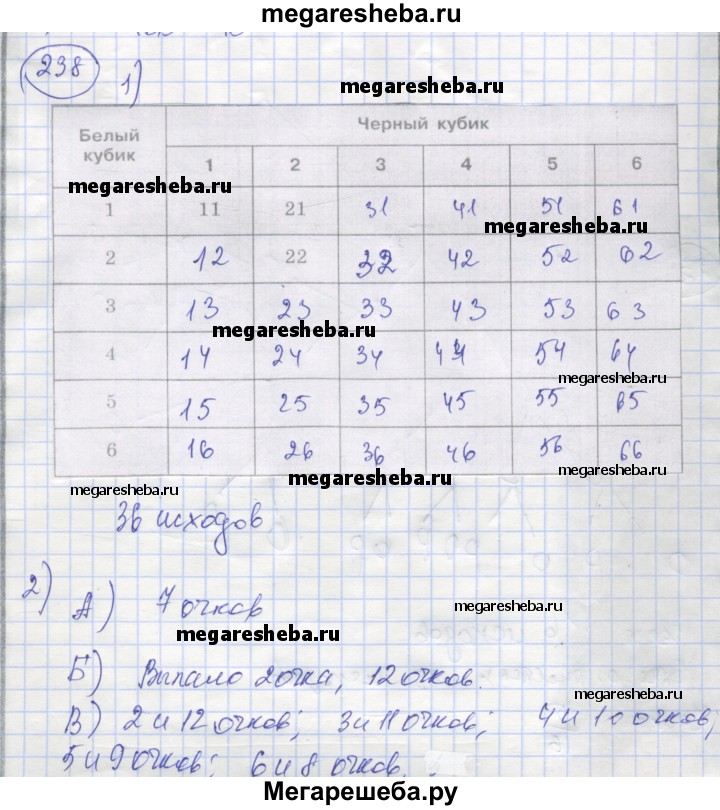 megaresheba.ru
238 1)
megaresheba.ru
Белый кубик Черный кубик
1 2 3 4 5 6
megaresheba.ru
1 11 21 31 41 51 61
megaresheba.ru
2 12 22 32 42 52 62
3 13 23 33 43 53 63
megaresheba.ru
4 14 24 34 44 54 64
megaresheba.ru
5 15 25 35 45 55 65
6 16 26 36 46 56 66
megaresheba.ru
megaresheba.ru
megaresheba.ru
36 исходов
2) А) 7 очков
megaresheba.ru
megaresheba.ru
Б) Выпало 2 очка, 12 очков.
megaresheba.ru
В) 2 и 12 очков; 3 и 11 очков; 4 и 10 очков;
5 и 9 очков; 6 и 8 очков.
megaresheba.ru
Мегарешеба.ру